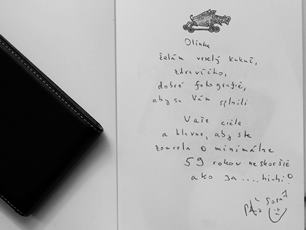 Olinka
želám veselý
dobré fotografie,
aby sa Vám splnili
Vaše ciele
a hlavne, aby ste
o minimálne
59 rokov neskoršie
ako ja .... hihi